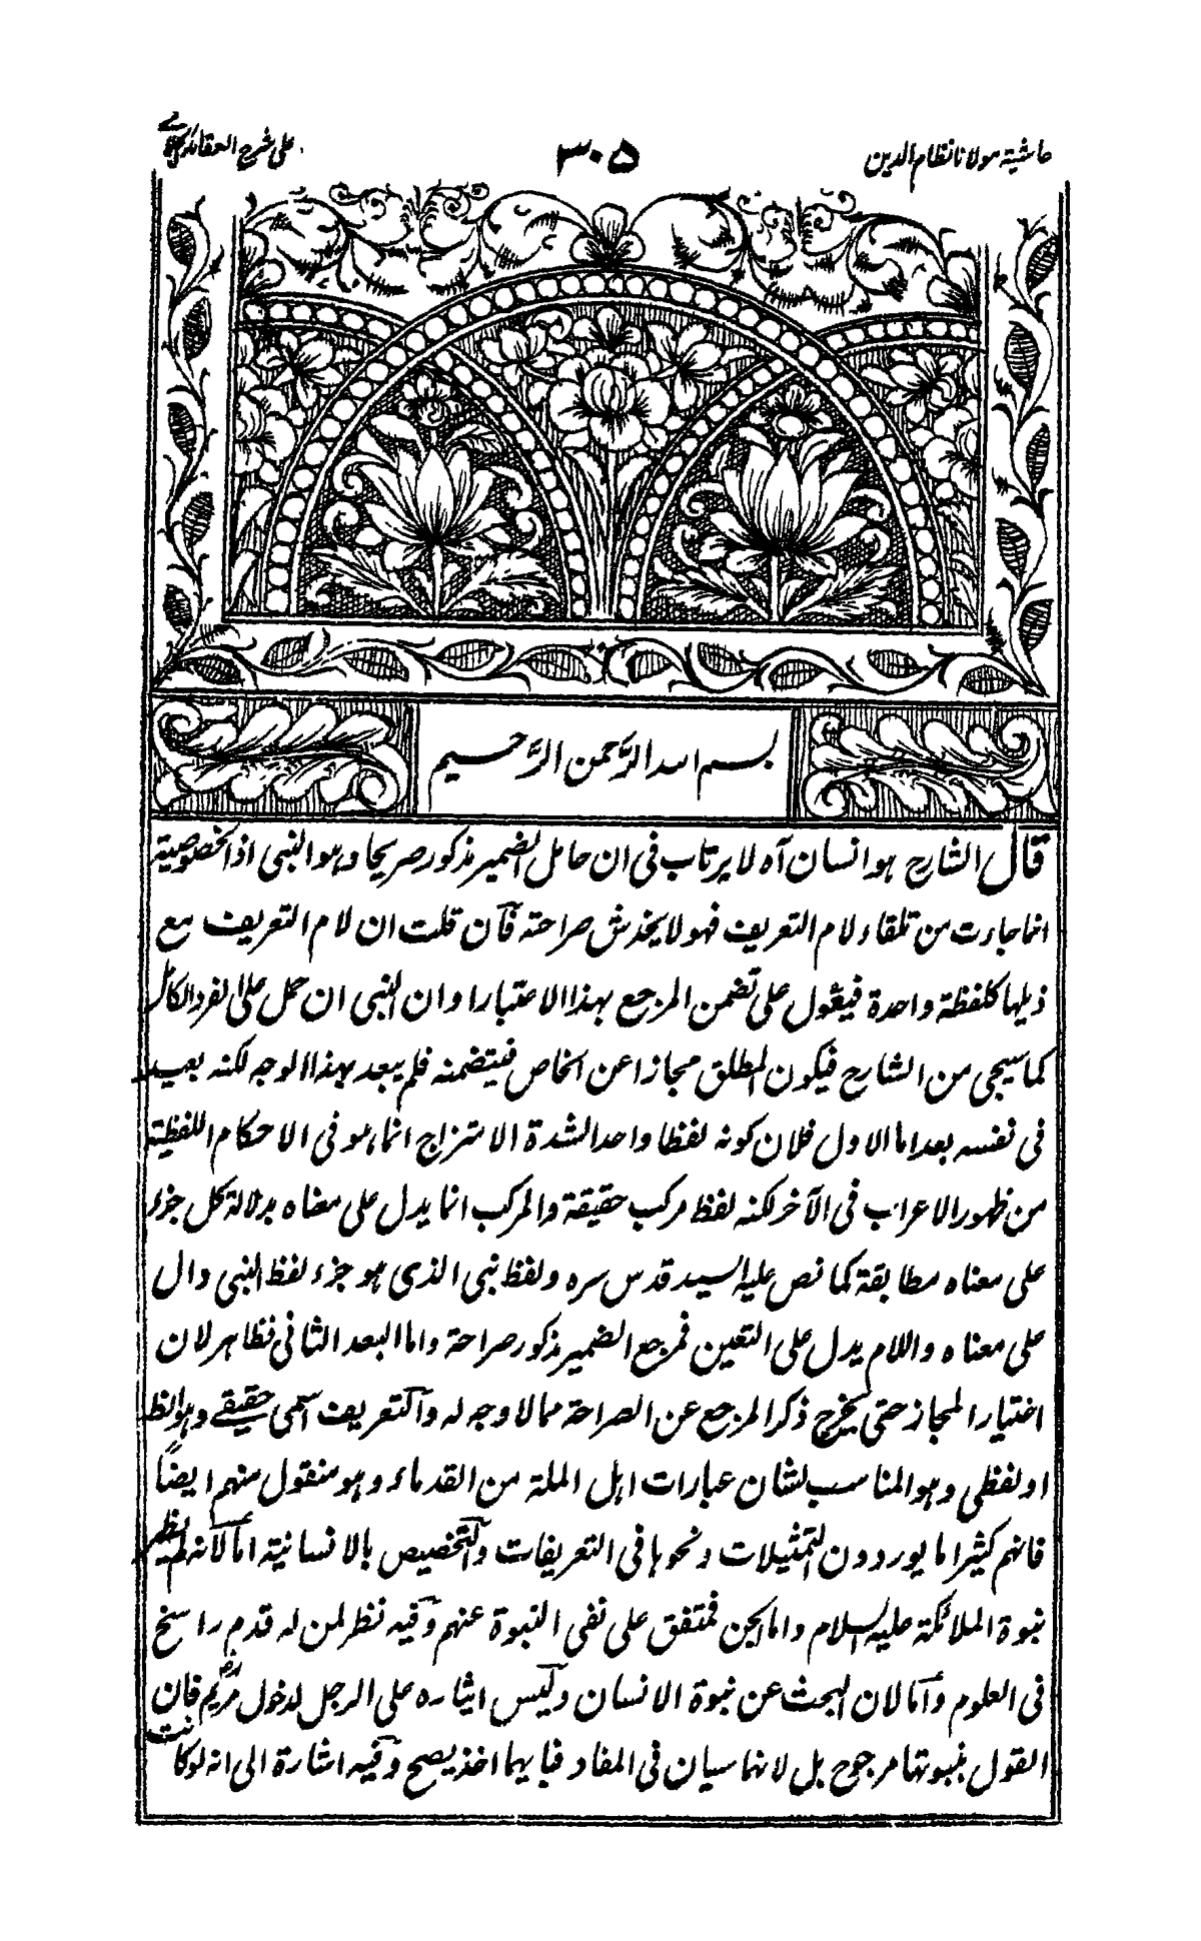 حاشية مولانا نظام الدين
٣٠٥
على شرح العقائد
بسم الله الرحمن الرحيم
قال الشارح هو انسان آه لا يرتاب فى ان حامل الضمير مذكور صريحا وهو النبى اذ الخصوصية
انما جاءت من تلقاء لام التعريف فهو لا يخدش صراحته فآن قلت ان لام التعريف مع
ذيلها كلفظة واحدة فيعول على تضمن المرجع بهذا الاعتبار او ان النبى ان حمل على الفرد الكامل
كما سيجى من الشارح فيكون المطلق مجازا عن الخاص فيتضمنه فلم يبعد بهذا الوجه لكنه بعيد
فى نفسه بعد اما الاول فلان كونه لفظا واحدا لشدة الامتزاج انما هو فى الاحكام اللفظية
من ظهور الاعراب فى الآخر لكنه لفظ مركب حقيقة والمركب انما يدل على معناه بدلالة كل جزء
على معناه مطابقة كما نص عليه السيد قدس سره ولفظ نبى الذى هو جزء لفظ النبى دال
على معناه واللام يدل على التعين فمرجع الضمير مذكور صراحة واما البعد الثانى فظاهر لان
اختيار المجاز حتى يخرج ذكر المرجع عن الصراحة مما لا وجه له وآلتعريف اسمى حقيقے وهو الظ
او لفظى وهو المناسب لشان عبارات اهل الملة من القدماء وهو منقول منهم ايضًا
فانهم كثيرا ما يوردون التمثيلات ونحوها فى التعريفات وآلتخصيص بالانسانية اما لانه لم يظهر
نبوة الملائكة عليه السلام واما الجن فمتفق على نفى النبوة عنهم وفيه نظر لمن له قدم راسخ
فى العلوم وآما لان البحث عن نبوة الانسان وليس ايثاره على الرجل لدخول مريم فان
القول بنبوتها مرجوح بل لانهما سيان فى المفاد فبايهما اخذ يصح وفيه اشارة الى انه لو كانت